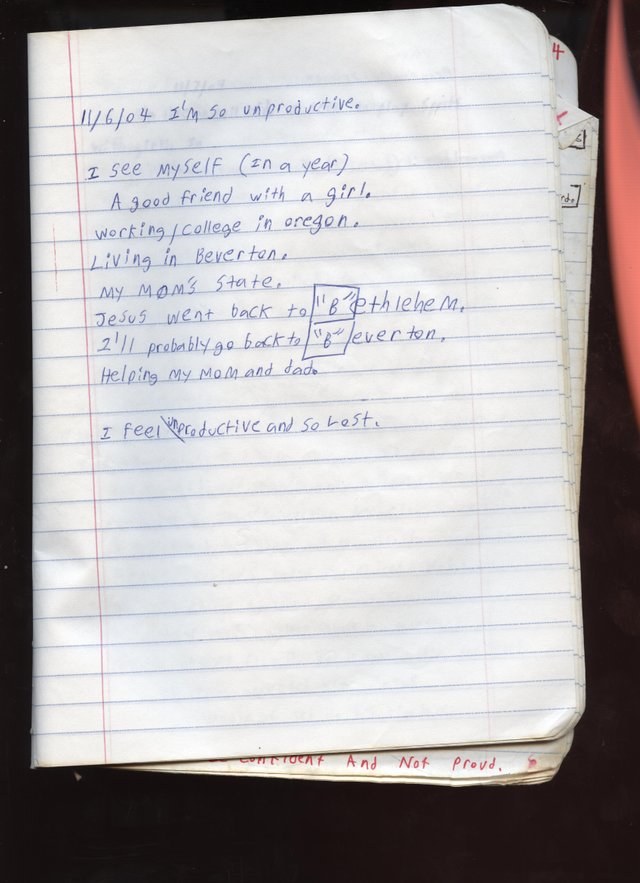 11/6/04 I'm so unproductive.
I see myself (In a year)
A good friend with a girl.
working/college in oregon.
Living in Beverton.
My Mom's state.
Jesus went back to "B"ethlehem.
I'll probably go back to "B"everton.
Helping my Mom and dad.
I feel unproductive and so Lost.
Confident And Not Proud.